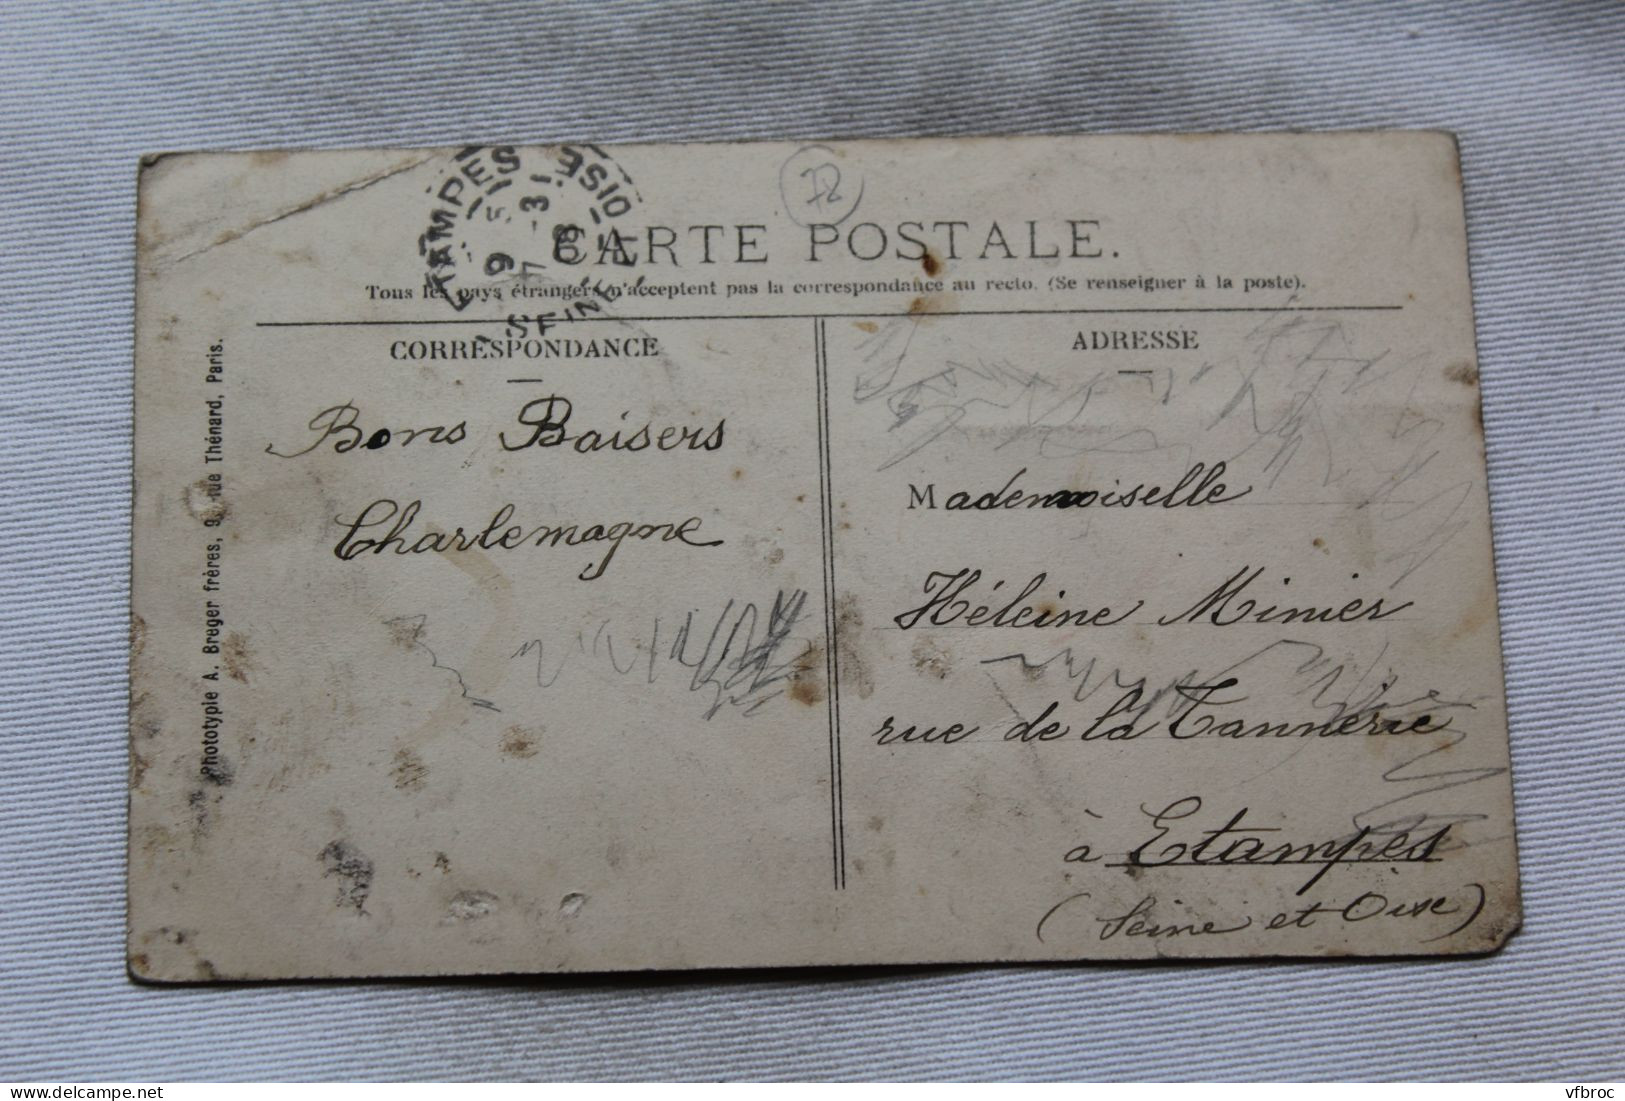 72
ETAMPES
SEINE-ET-OISE
CARTE POSTALE.
Tous les pays étrangers n'acceptent pas la correspondance au recto. (Se renseigner à la poste).
CORRESPONDANCE
Bons Baisers
Charlemagne
ADRESSE
Mademoiselle
Héleine Minier
rue de la Tannerie
à Etampes
(Seine et Oise)
Phototypie A. Breger frères, 9, rue Thénard, Paris.
vfbroc